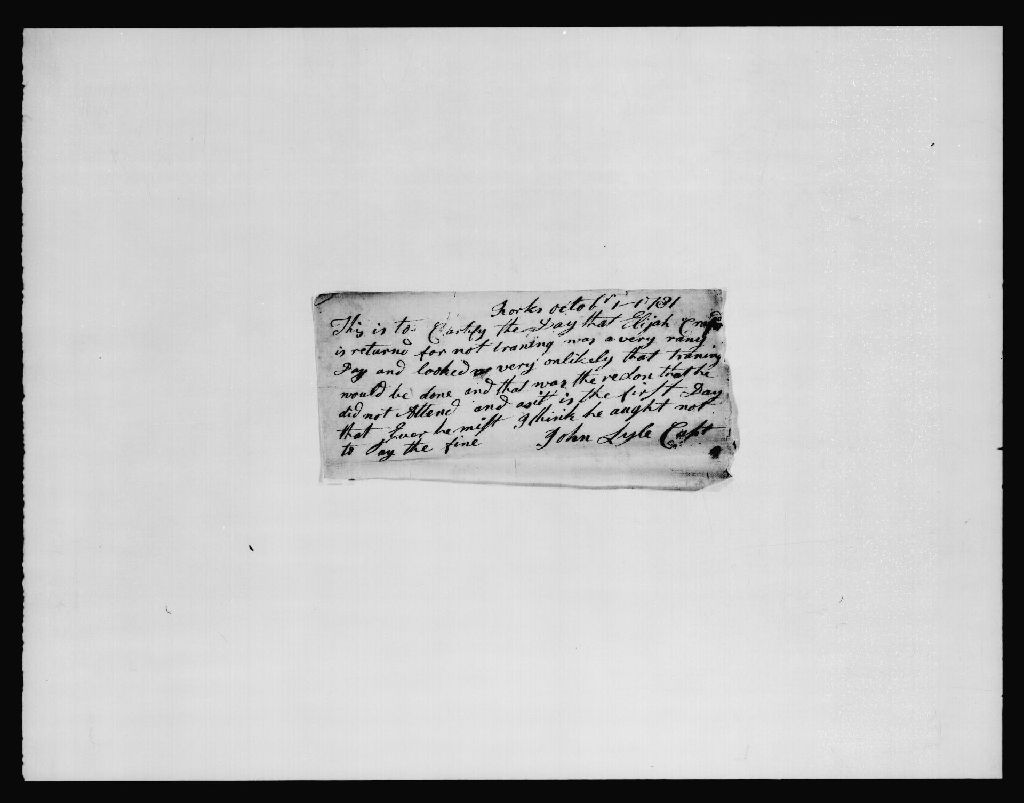 Forks octobr 1 1781
This is to Cartify the Day that Elijah
is returnd for not traning was a very rainy
Day and looked very onlikely that traning
would be done and that was the reson that he
did not Attend and as it is the first Day
that Ever he mist I think he aught not
to Pay the fine John Lyle Capt